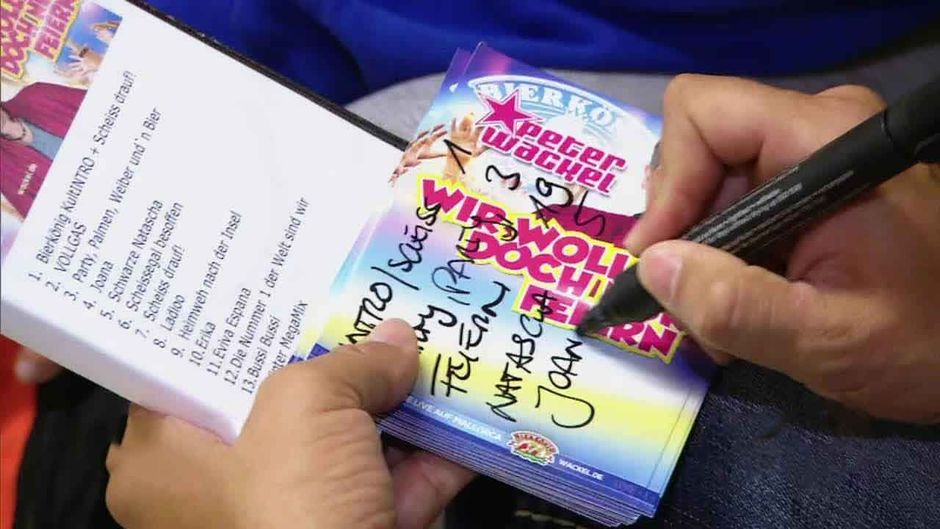 WOLL
DOCH N
FEIERN
wackel.de
1. Bierkönig KultINTRO + Scheiss drauf!
2. VOLGAS
3. Party, Palmen, Weiber und'n Bier
4. Joana
5. Schwarze Natascha
6. Scheissegal besoffen
7. Scheiss drauf!
8. Ladioo
9. Heimweh nach der Insel
10. Erika
11. Eviva Espana
12. Die Nummer 1 der Welt sind wir
13. Bussi Bussi
MegaMix
BIERKÖ
peter
wackel
WIR WOLL
DOCH N
FEIERN
1
3
FEIERN 19
NATASCHA 5
JOAN
LIVE AUF MALLORCA
WACKEL.DE